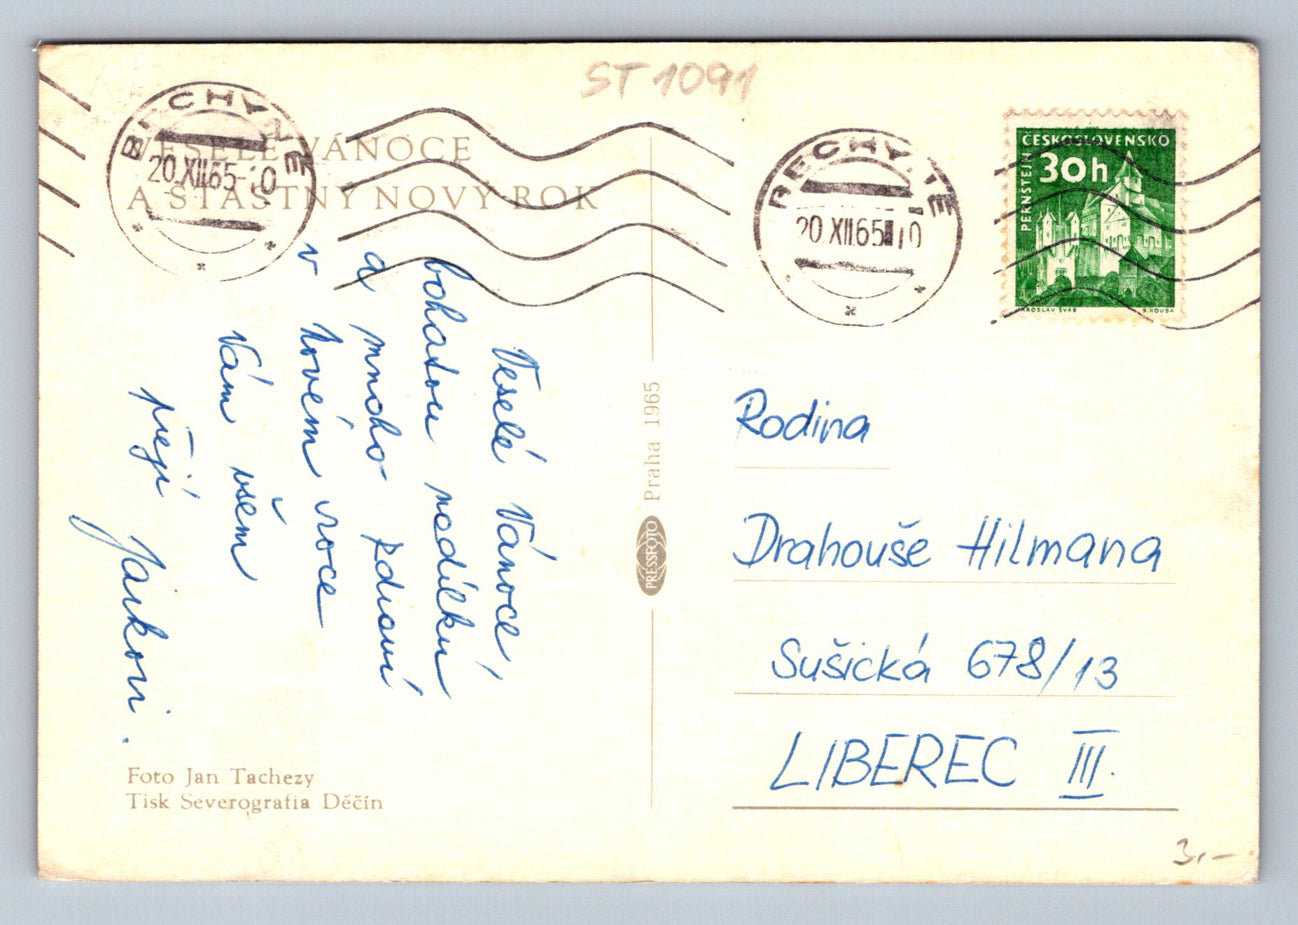 ST 1091
VESELÉ VÁNOCE
A ŠŤASTNÝ NOVÝ ROK
BECHYNĚ
20.XII.65
BECHYNĚ
20.XII.65
ČESKOSLOVENSKO
30h
PERNŠTEJN
JAROSLAV ŠVÁB
Veselé Vánoce,
bohatou nadílku
a mnoho zdraví
v novém roce
Vám všem
přejí Jarkovi.
Praha 1965
PRESSFOTO
Rodina
Drahouše Hilmana
Sušická 678/13
LIBEREC III.
Foto Jan Tachezy
Tisk Severografia Děčín
3,-